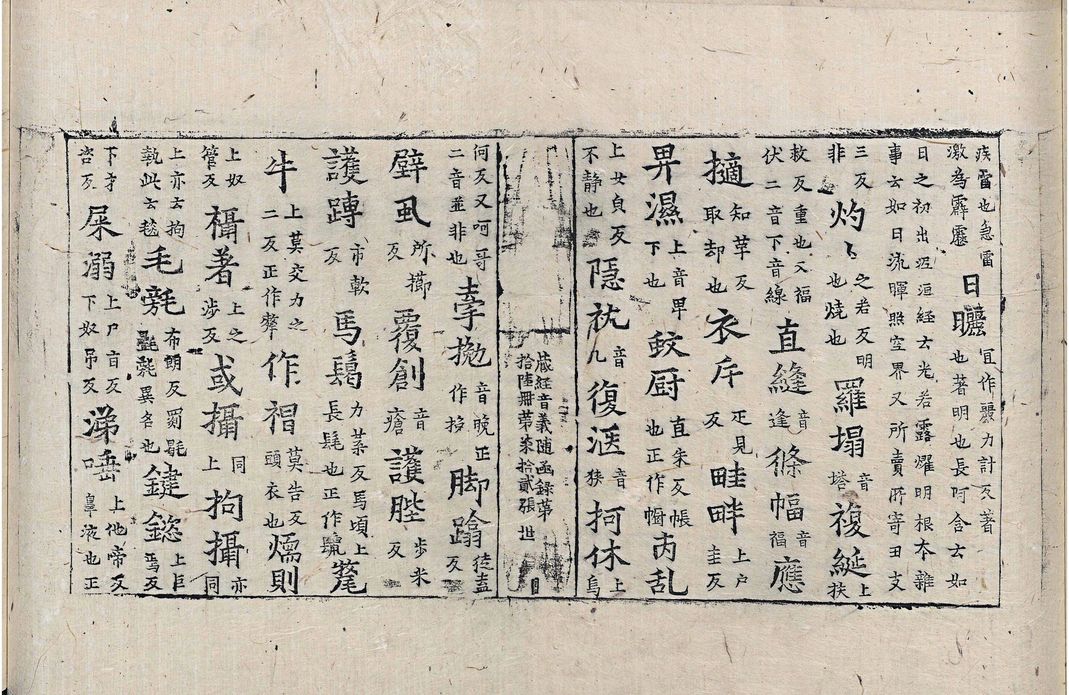 疾雷也急雷激為霹靂 日曬 宜作曬力計反著也著明也長阿含云如
日之初出涅洹經云光若露燿明根本雜事云如日流暉照空界又所賣所寄丑支
三反非 灼〻 之若反明也燒也 羅塌 音塔 複綖 上扶
救反重也又福伏二音下音線 直縫 音逢 絛幅 音福 應
擿 知革反取却也 衣斤 疋見反 畦畔 上户圭反
畀濕 上音卑下也 厨 直朱反帳也正作幮 芮乱
上女貞反不静也 隠 音几 復 音狹 抲休 上烏
藏經音義隨函錄第拾陸冊第柒拾貳張 世
何反又呵哥二音並非也 拋 音晚正作挽 脚蹹 徒盍反
壁虱 所櫛反 覆創 音瘡 護䏶 步米反
護䏝 市軟反 馬鬣 力葉反馬頃上長髦也正作鬛 氂
牛 上莫交力之二反正作犛 作裮 莫告反頭衣也 燸則
上奴管反 欇著 上之涉反 或攝 同上 拘攝 亦同
上亦云拘執此云毯 毛㲠 布朗反𦋺㲪氀毲異名也 鍵鎡 上巨焉反
下才咨反 屎溺 上尸旨反下奴吊反 涕唾 上他帝反鼻液也正